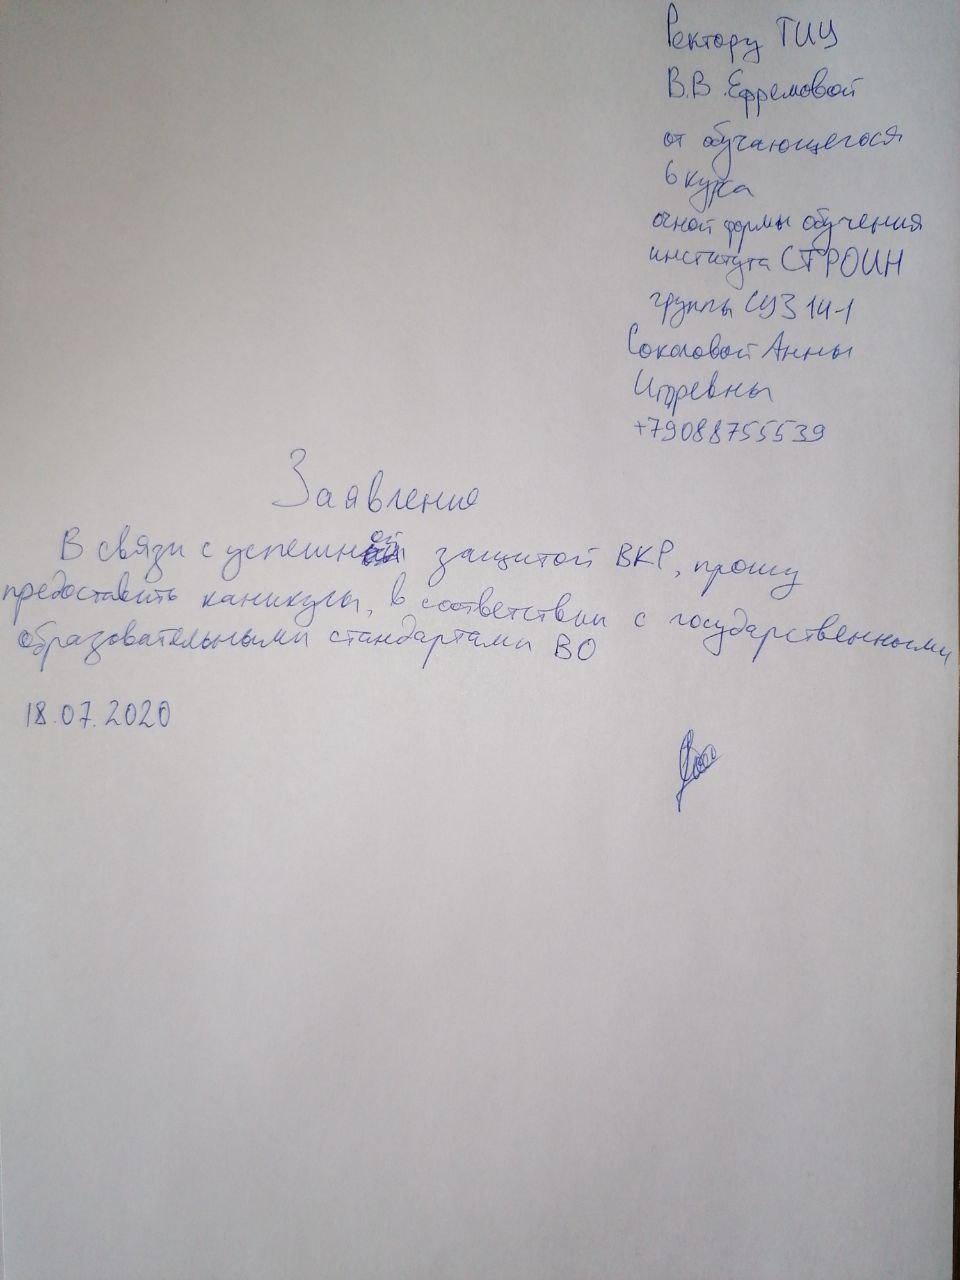 Ректору ТИЦ
В.В. Ефремовой
от обучающегося
6 курса
очной формы обучения
института СТРОИН
группы СУЗ 14-1
Соколовой Анны
Игоревны
+79088755539
Заявление
В связи с успешной защитой ВКР, прошу
предоставить каникулы, в соответствии с государственными
образовательными стандартами ВО
18.07.2020